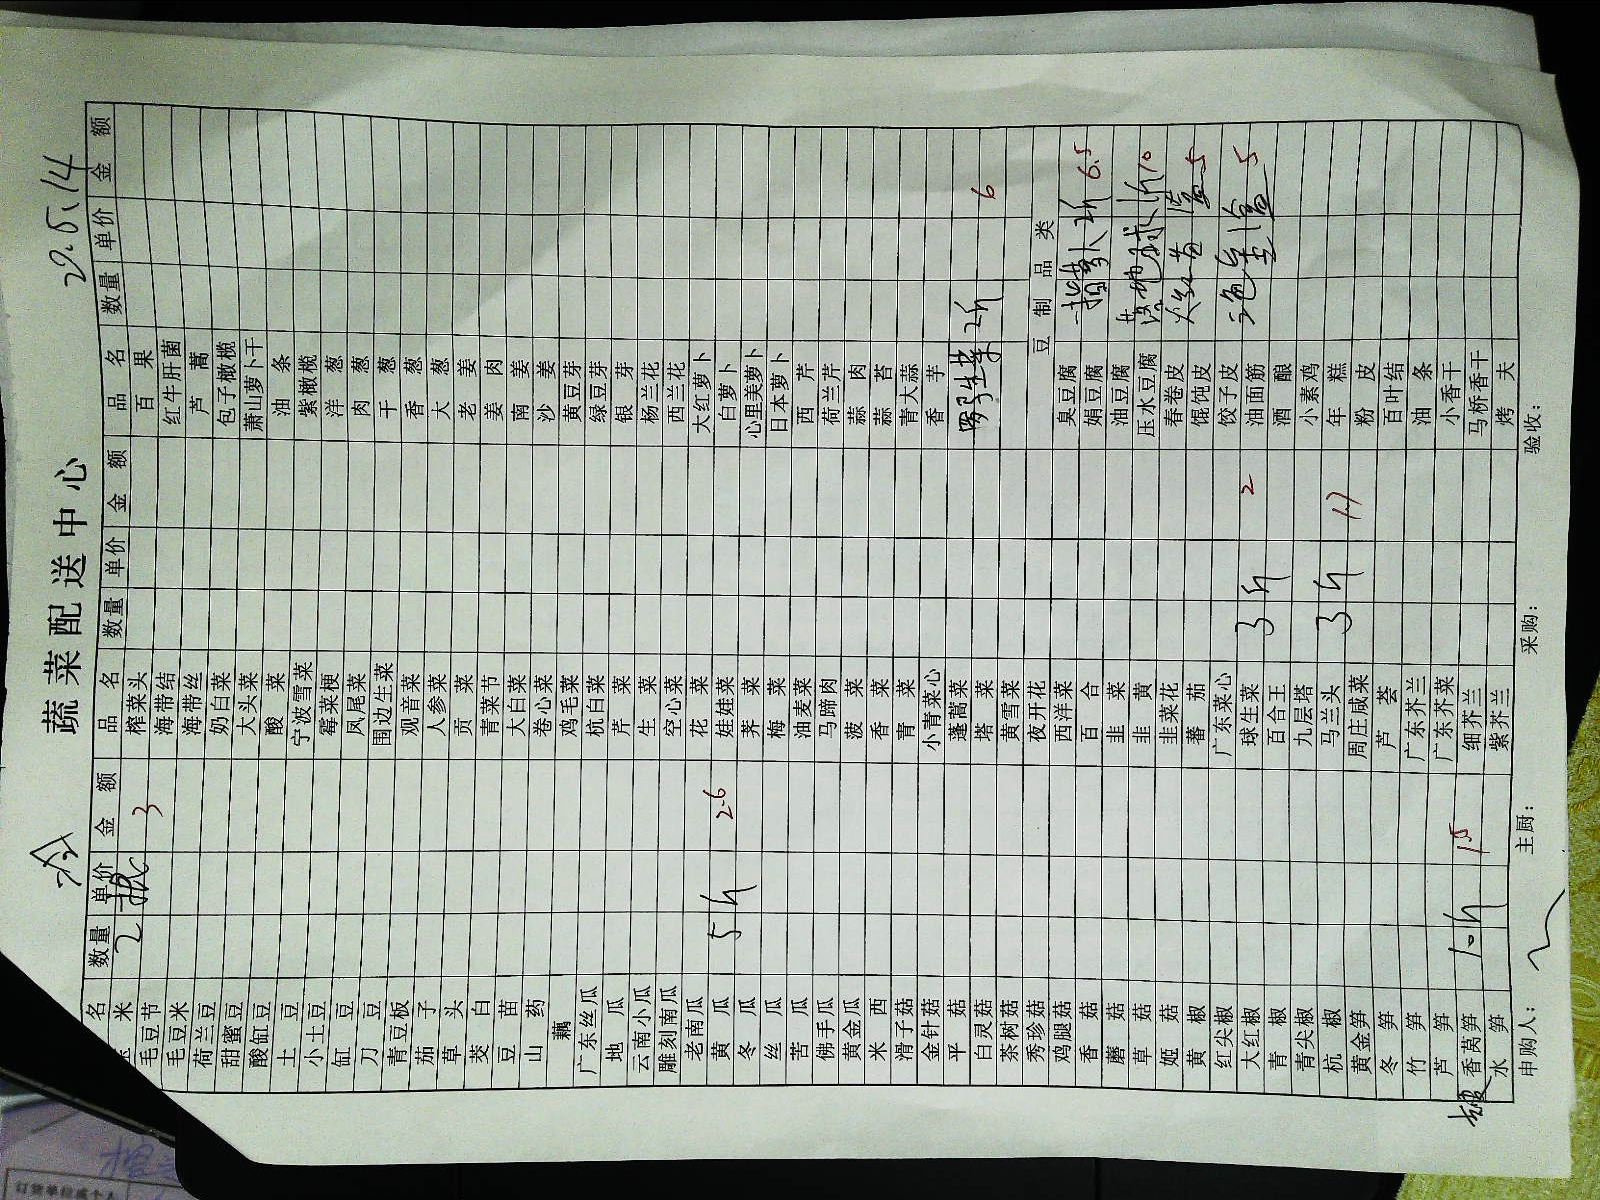 蔬菜配送中心
29.5.14
名 数量 单价 金额 品名 数量 单价 金额 品名 数量 单价 金额
米 2 3 榨菜头 百果
毛豆节 海带结 红牛肝菌
毛豆米 海带丝 芦蒿
荷兰豆 奶白菜 包子橄榄
甜蜜豆 大头菜 萧山萝卜干
酸缸豆 酸菜 油条
土豆 宁波雪菜 紫橄榄
小土豆 霉菜梗 洋葱
缸豆 凤尾菜 肉葱
刀豆 围边生菜 干葱
青豆板 观音菜 香葱
茄子 人参菜 大葱
草头 贡菜 老姜
茭白 青菜节 姜肉
豆苗 大白菜 南姜
山药 卷心菜 沙姜
藕 鸡毛菜 黄豆芽
广东丝瓜 杭白菜 绿豆芽
地瓜 芹菜 银芽
云南小瓜 生菜 杨兰花
雕刻南瓜 空心菜 西兰花
老南瓜 花菜 大红萝卜
黄瓜 5斤 2.6 娃娃菜 白萝卜
冬瓜 荠菜 心里美萝卜
丝瓜 梅菜 日本萝卜
苦瓜 油麦菜 西芹
佛手瓜 马蹄肉 荷兰芹
黄金瓜 菠菜 蒜肉
米西 香菜 蒜苔
滑子菇 青菜 青大蒜
金针菇 小青菜心 香芋
平菇 蓬蒿菜
白灵菇 塔菜 2斤 6
茶树菇 黄雪菜
秀珍菇 夜开花 豆制品类
鸡腿菇 西洋菜 臭豆腐
香菇 百合 娟豆腐 2斤 6.5
蘑菇 韭菜 油豆腐
草菇 韭黄 压水豆腐 10
姬菇 韭菜花 春卷皮
黄椒 蕃茄 馄饨皮 5
红尖椒 广东菜心 饺子皮
大红椒 球生菜 3斤 2 油面筋 1盒 5
青椒 百合王 酒酿
青尖椒 九层塔 小素鸡
杭椒 马兰头 3斤 17 年糕
黄金笋 周庄咸菜 粉皮
冬笋 芦荟 百叶结
竹笋 广东芥兰 油条
芦笋 广东芥菜 小香干
香莴笋 10斤 15 细芥兰 马桥香干
水笋 紫芥兰 烤夫
申购人： 主厨： 采购： 验收：
订货单位或个人